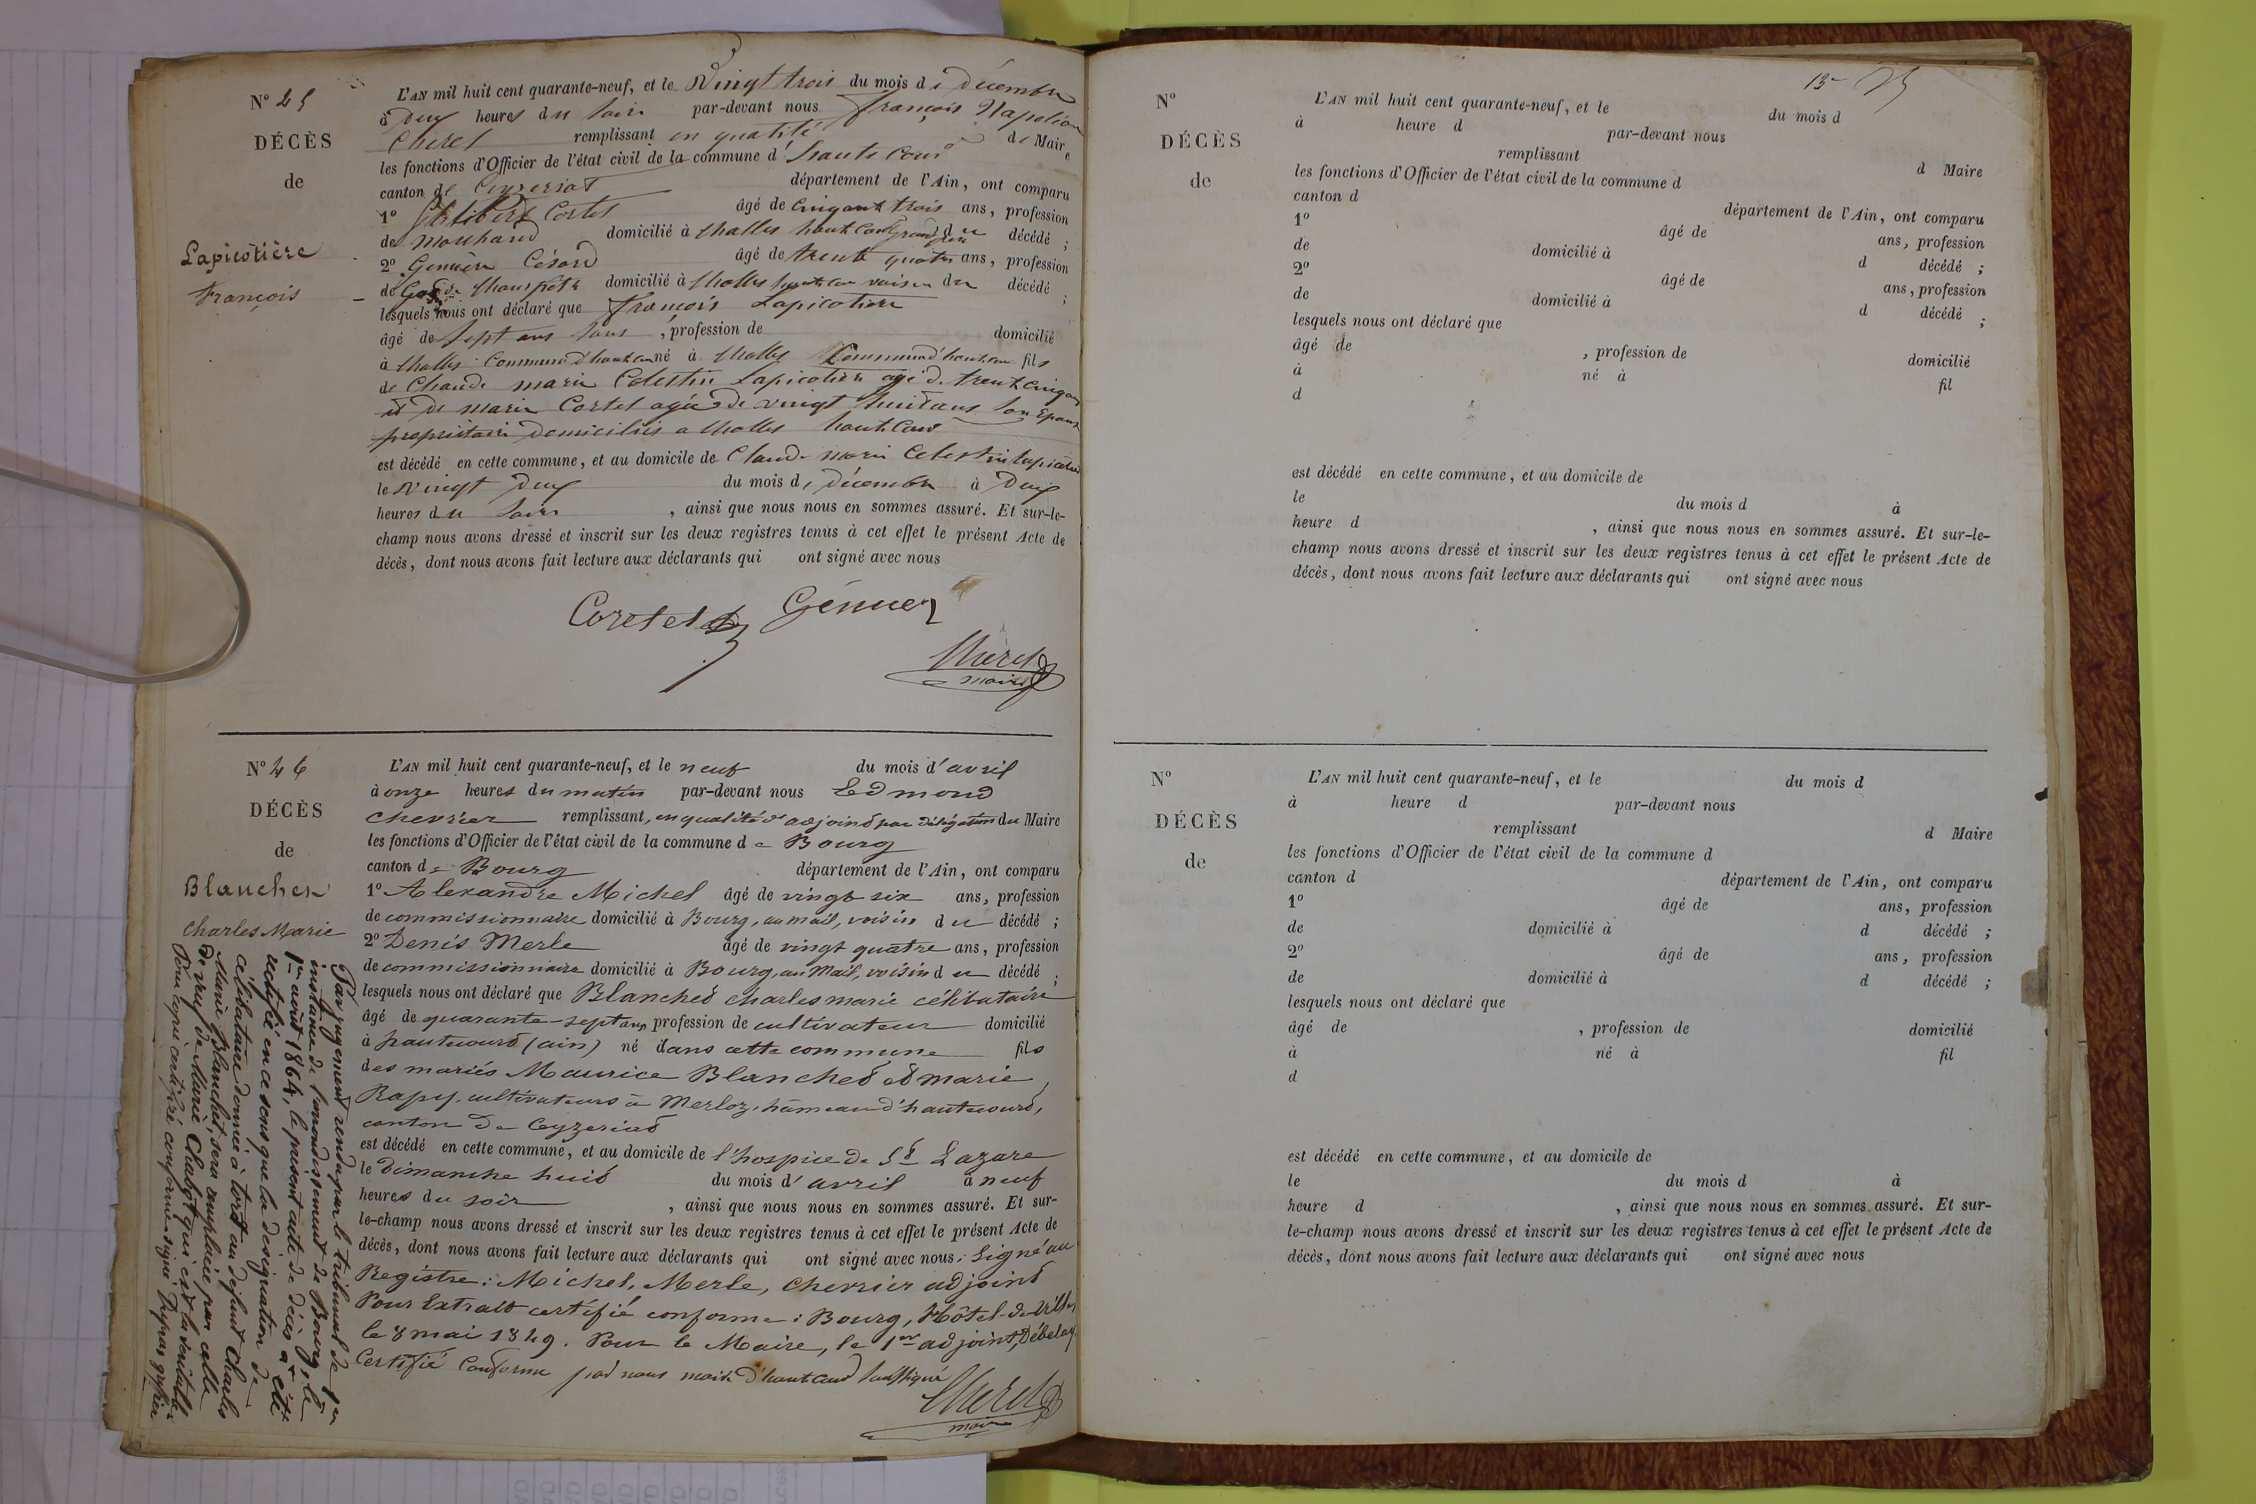 N° 25
DÉCÈS
de
Lapicotière
François
L'AN mil huit cent quarante-neuf, et le Vingt trois du mois de décembre
à Deux heures du Soir par-devant nous françois Napoléon
Cheret remplissant en qualité de Maire
les fonctions d'Officier de l'état civil de la commune d' hautecour
canton de Ceyzeriat département de l'Ain, ont comparu
1° Philibert Cortet âgé de cinquante trois ans, profession
de marchand domicilié à Challes hautecour grand père du décédé ;
2° Genuen Césard âgé de trente quatre ans, profession
de Garde Champetre domicilié à Challes hautecour voisin du décédé ;
lesquels nous ont déclaré que françois Lapicotiere
âgé de Sept ans Sans , profession de domicilié
à Challes Commune d'hautecour né à Challes Commune d'hautecour fils
de Claude marie Celestin Lapicotiere agé de trente cinq ans
et de marie Cortet agée de vingt huit ans Son Epouse
propriétaire domiciliés a Challes hautecour
est décédé en cette commune, et au domicile de Claude marie Celestin lapicotiere
le Vingt Deux du mois de décembre à Deux
heures du Soir , ainsi que nous nous en sommes assuré. Et sur-le-
champ nous avons dressé et inscrit sur les deux registres tenus à cet effet le présent Acte de
décès, dont nous avons fait lecture aux déclarants qui ont signé avec nous
Coretet Génuen
Cheret
maire
N° 26
DÉCÈS
de
Blanchet
Charles Marie
L'AN mil huit cent quarante-neuf, et le neuf du mois d'avril
à onze heures du matin par-devant nous Edmond
chevrier remplissant, en qualité d'adjoint par délégation du Maire
les fonctions d'Officier de l'état civil de la commune de Bourg
canton de Bourg département de l'Ain, ont comparu
1° Alexandre Michel âgé de vingt six ans, profession
de commissionnaire domicilié à Bourg, au mail, voisin du décédé ;
2° Denis Merle âgé de vingt quatre ans, profession
de commissionnaire domicilié à Bourg, au Mail, voisin du décédé ;
lesquels nous ont déclaré que Blanchet charles marie célibataire
âgé de quarante-sept ans profession de cultivateur domicilié
à hautecourt (ain) né dans cette commune fils
des mariés Maurice Blanchet et marie
Rapy, cultivateurs à Merloz, hâmeau d'hautecourt,
canton de Ceyzeriat
est décédé en cette commune, et au domicile de l'hospice de St Lazare
le dimanche huit du mois d'avril à neuf
heures du soir , ainsi que nous nous en sommes assuré. Et sur-
le-champ nous avons dressé et inscrit sur les deux registres tenus à cet effet le présent Acte de
décès, dont nous avons fait lecture aux déclarants qui ont signé avec nous. Signé au
Registre : Michel, Merle, chevrier adjoint
Pour Extrait certifié conforme : Bourg, Hôtel-de-Ville,
le 8 mai 1849. Pour le Maire, le 1er adjoint, Débeley
Certifié Conforme par nous maire d'hautecour Soussigné
Cheret
maire
Par jugement rendu par le tribunal de 1ère
instance de l'arrondissement de Bourg, le
1er août 1864, le présent acte de décès a été
rectifié en ce sens que la désignation de
célibataire donnée à tort au défunt Charles
Marie Blanchet, sera remplacée par celle
de veuf de Marie Chabot qui est la véritable.
Pour copie certifiée conforme signé Dupras greffier
13
N°
DÉCÈS
de
L'AN mil huit cent quarante-neuf, et le du mois d
à heure d par-devant nous
remplissant d Maire
les fonctions d'Officier de l'état civil de la commune d
canton d département de l'Ain, ont comparu
1° âgé de ans, profession
de domicilié à d décédé ;
2° âgé de ans, profession
de domicilié à d décédé ;
lesquels nous ont déclaré que
âgé de , profession de domicilié
à né à fil
d
est décédé en cette commune, et au domicile de
le du mois d à
heure d , ainsi que nous nous en sommes assuré. Et sur-le-
champ nous avons dressé et inscrit sur les deux registres tenus à cet effet le présent Acte de
décès, dont nous avons fait lecture aux déclarants qui ont signé avec nous
N°
DÉCÈS
de
L'AN mil huit cent quarante-neuf, et le du mois d
à heure d par-devant nous
remplissant d Maire
les fonctions d'Officier de l'état civil de la commune d
canton d département de l'Ain, ont comparu
1° âgé de ans, profession
de domicilié à d décédé ;
2° âgé de ans, profession
de domicilié à d décédé ;
lesquels nous ont déclaré que
âgé de , profession de domicilié
à né à fil
d
est décédé en cette commune, et au domicile de
le du mois d à
heure d , ainsi que nous nous en sommes assuré. Et sur-
le-champ nous avons dressé et inscrit sur les deux registres tenus à cet effet le présent Acte de
décès, dont nous avons fait lecture aux déclarants qui ont signé avec nous